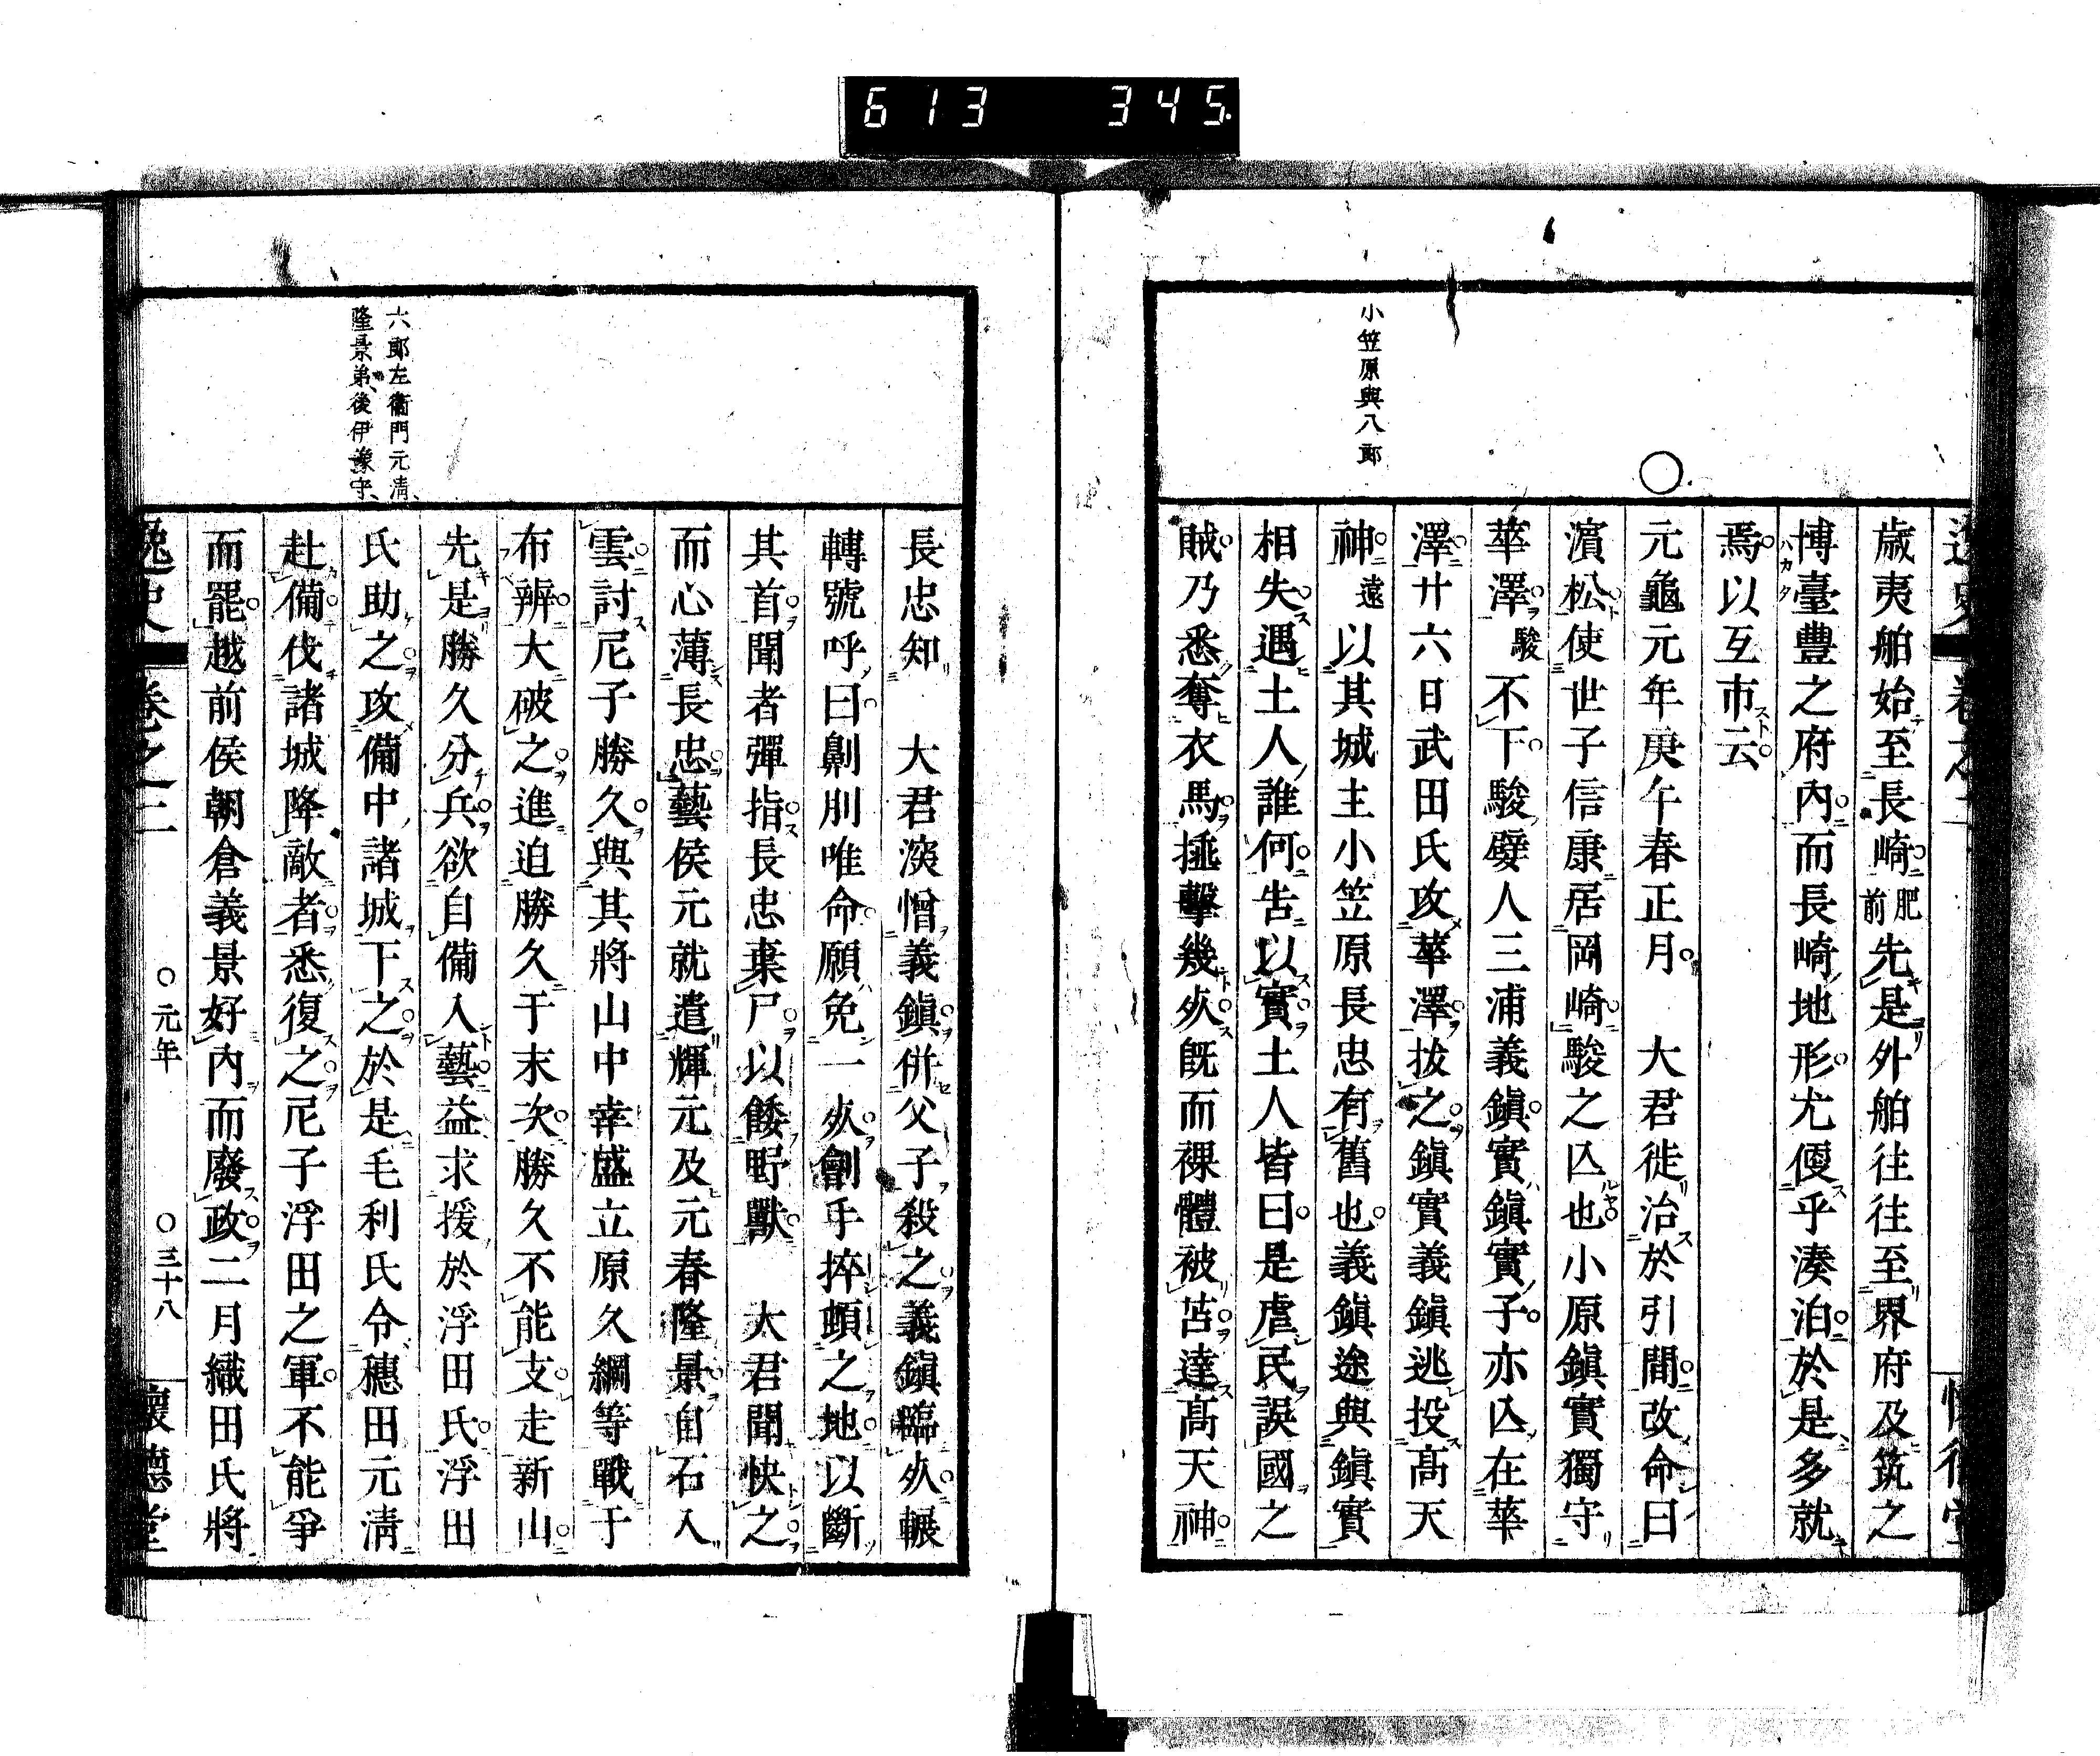 613 345
歲夷舶始至長崎肥前先是外舶往往至界府及筑之
博臺豐之府內而長崎地形尤便乎湊泊於是多就
焉以互市云
元龜元年庚午春正月　大君徙治於引間改命曰
濱松使世子信康居岡崎駿之亾也小原鎮實獨守
華澤駿不下駿嬖人三浦義鎮實鎮實子亦亾在華
澤廿六日武田氏攻華澤拔之鎮實義鎮逃投高天
神遠以其城主小笠原長忠有舊也義鎮途與鎮實
相失遇土人誰何告以實土人皆曰是虐民誤國之
賊乃悉奪衣馬捶擊幾死既而裸體被苫達高天神
小笠原與八郎
長忠知　大君深憎義鎮併父子殺之義鎮臨死輾
轉號呼曰劓刖唯命願免一死劊手捽頓之地以斷
其首聞者彈指長忠棄尸以餧野獸　大君聞快之
而心薄長忠藝侯元就遣輝元及元春隆景自石入
雲討尼子勝久與其將山中幸盛立原久綱等戰于
布辨大破之進迫勝久于末次勝久不能支走新山
先是勝久分兵欲自備入藝益求援於浮田氏浮田
氏助之攻備中諸城下之於是毛利氏令穗田元淸
赴備伐諸城降敵者悉復之尼子浮田之軍不能爭
而罷越前侯朝倉義景好內而廢政二月織田氏將
六郎左衞門元淸、
隆景弟、後伊豫守、
逸史　卷之二　○元年　○三十八　懷德堂